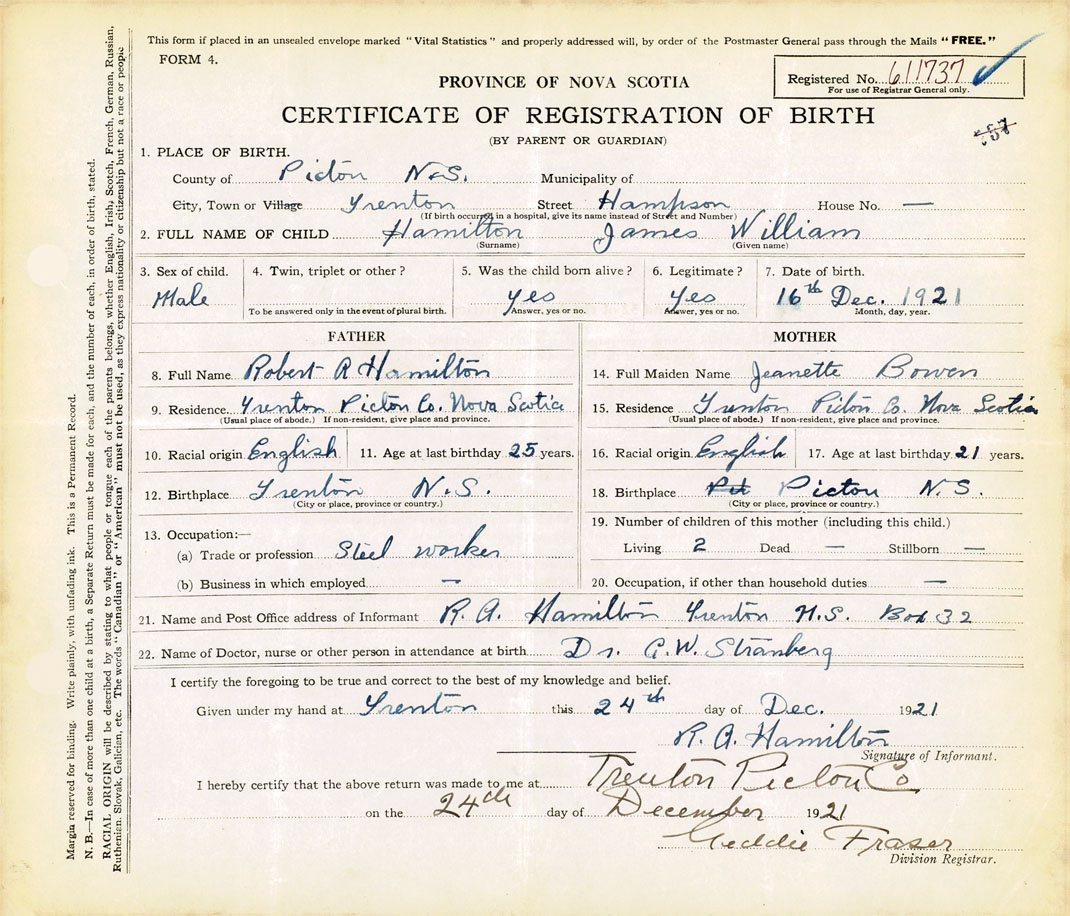 This form if placed in an unsealed envelope marked "Vital Statistics" and properly addressed will, by order of the Postmaster General pass through the Mails "FREE."
FORM 4.
PROVINCE OF NOVA SCOTIA
Registered No. 611737
For use of Registrar General only.
CERTIFICATE OF REGISTRATION OF BIRTH
(BY PARENT OR GUARDIAN)
1. PLACE OF BIRTH.
County of Picton N.S. Municipality of
City, Town or Village Trenton Street Hampson House No. —
(If birth occurred in a hospital, give its name instead of Street and Number)
2. FULL NAME OF CHILD Hamilton James William
(Surname) (Given name)
3. Sex of child. 4. Twin, triplet or other? 5. Was the child born alive? 6. Legitimate? 7. Date of birth.
Male Yes Yes 16th Dec. 1921
To be answered only in the event of plural birth. Answer, yes or no. Answer, yes or no. Month, day, year.
FATHER MOTHER
8. Full Name Robert A Hamilton 14. Full Maiden Name Jeanette Bowen
9. Residence Trenton Picton Co. Nova Scotia 15. Residence Trenton Picton Co. Nova Scotia
(Usual place of abode.) If non-resident, give place and province. (Usual place of abode.) If non-resident, give place and province.
10. Racial origin English 11. Age at last birthday 25 years. 16. Racial origin English 17. Age at last birthday 21 years.
12. Birthplace Trenton N.S. 18. Birthplace Picton N.S.
(City or place, province or country.) (City or place, province or country.)
13. Occupation:— 19. Number of children of this mother (including this child.)
(a) Trade or profession Steel worker Living 2 Dead — Stillborn —
(b) Business in which employed — 20. Occupation, if other than household duties —
21. Name and Post Office address of Informant R. A. Hamilton Trenton N.S. Box 32
22. Name of Doctor, nurse or other person in attendance at birth Dr. G.W. Stramberg
I certify the foregoing to be true and correct to the best of my knowledge and belief.
Given under my hand at Trenton this 24th day of Dec. 1921
R. A. Hamilton
Signature of Informant.
I hereby certify that the above return was made to me at Trenton Picton Co
on the 24th day of December 1921
Geddie Fraser
Division Registrar.
Margin reserved for binding. Write plainly, with unfading ink. This is a Permanent Record.
N. B.—In case of more than one child at a birth, a Separate Return must be made for each, and the number of each, in order of birth, stated.
RACIAL ORIGIN will be described by stating to what people or tongue each of the parents belongs, whether English, Irish, Scotch, French, German, Russian,
Ruthenian, Slovak, Galician, etc. The words "Canadian" or "American" must not be used, as they express nationality or citizenship but not a race or people